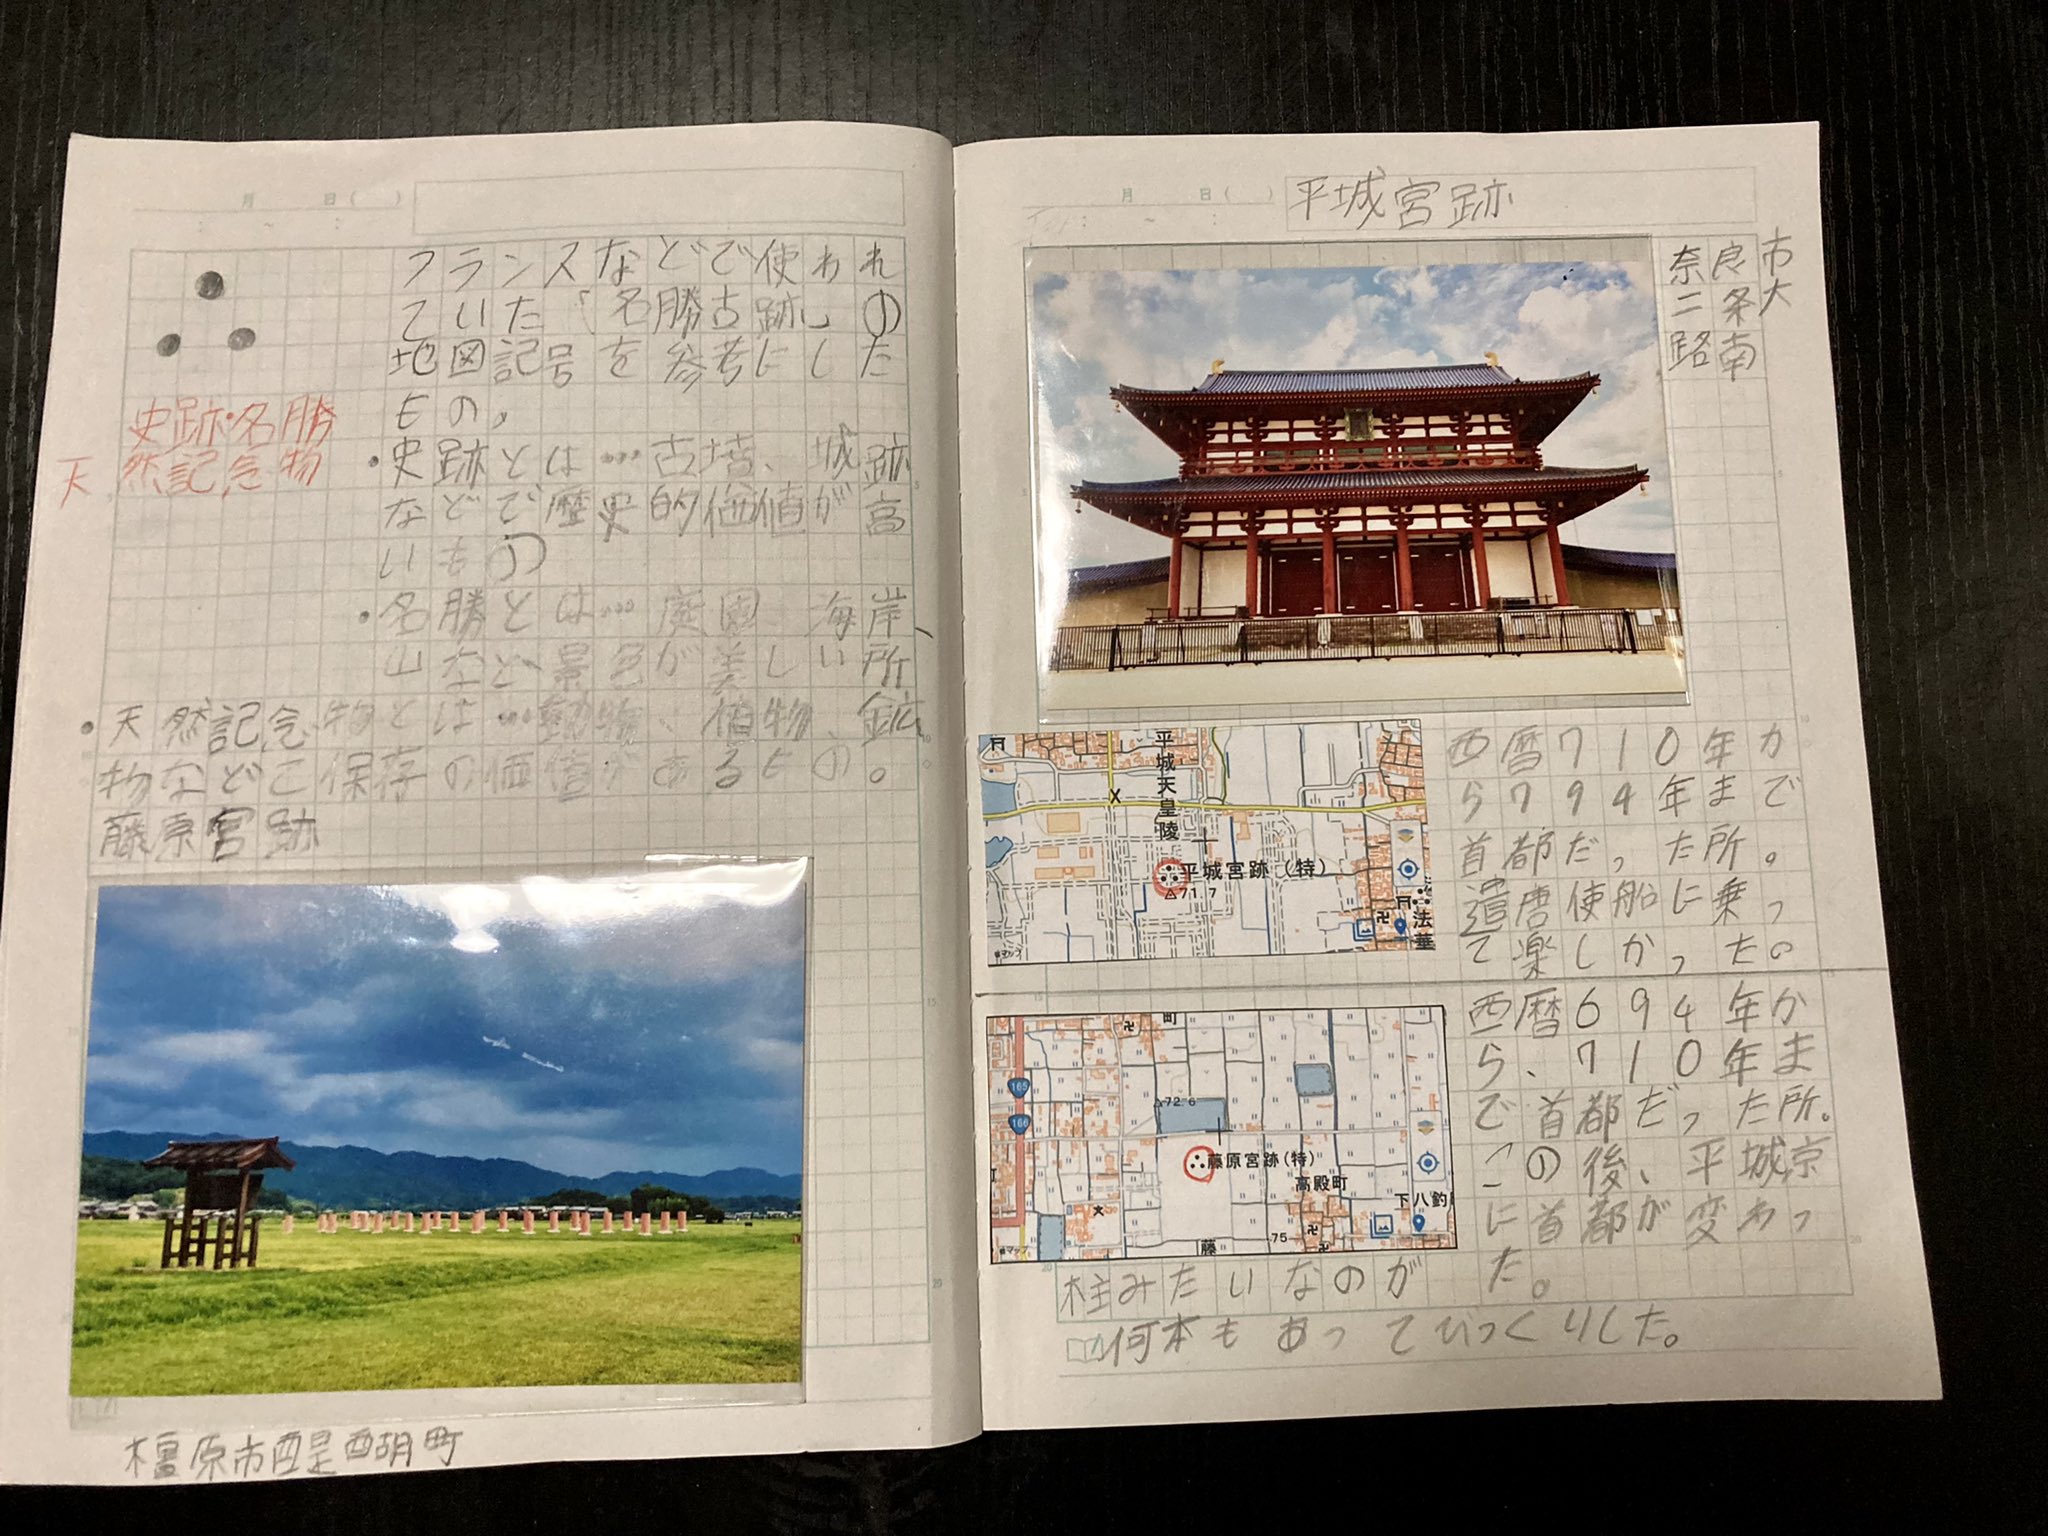 月 日( )
フランスなどで使われ
ていた「名勝古跡」の
地図記号を参考にした
もの。
史跡・名勝
天然記念物
・史跡とは…古墳、城跡
などで歴史的価値が高
いもの
・名勝とは…庭園、海岸、
山など、景色が美しい所
・天然記念物とは…動物、植物、鉱
物などで保存の価値があるもの。
藤原宮跡
橿原市醍醐町
月 日( )
平城宮跡
奈良市
二条大
路南
平城天皇陵
平城宮跡(特)
71.7
法華
西暦710年か
ら794年まで
首都だった所。
遣唐使船に乗っ
て楽しかった。
町
165
166
72.6
藤原宮跡(特)
高殿町
下八釣
75
藤
西暦694年か
ら、710年ま
で首都だった所。
この後、平城京
に首都が変わっ
た。
柱みたいなのが
何本もあってびっくりした。